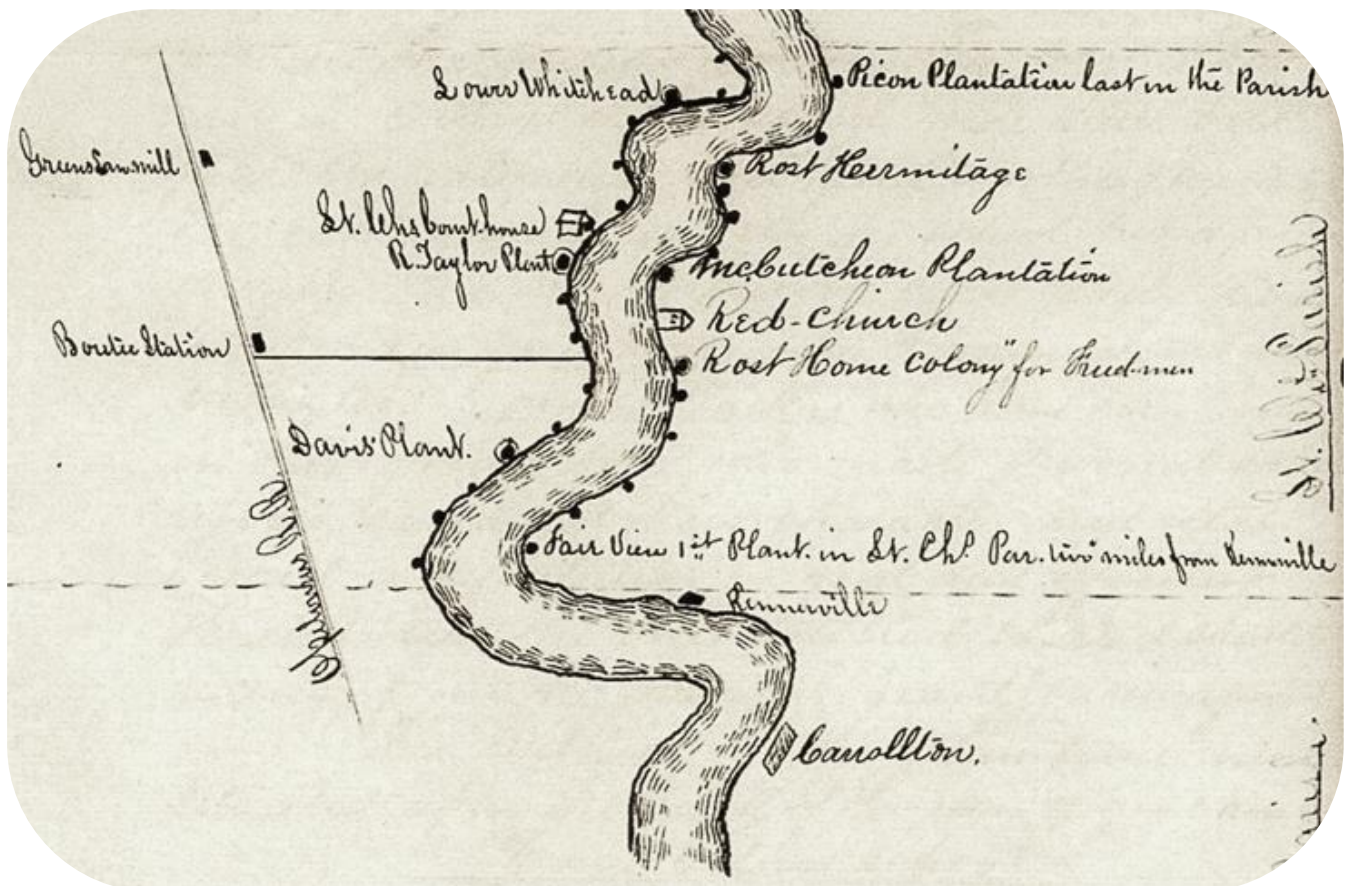 Lower Whitehead
Picou Plantation last in the Parish
Greens Sawmill
Rost Hermitage
St. Chs Court-house
R. Taylor Plant.
McCutcheon Plantation
Red-Church
Boutte Station
Rost Home Colony" for Freed-men
Davis Plant.
Fair View 1st Plant. in St. Chs Par. two miles from Kennerville
Kennerville
Opelousas R.R.
Carrollton.
St. Chs Parish